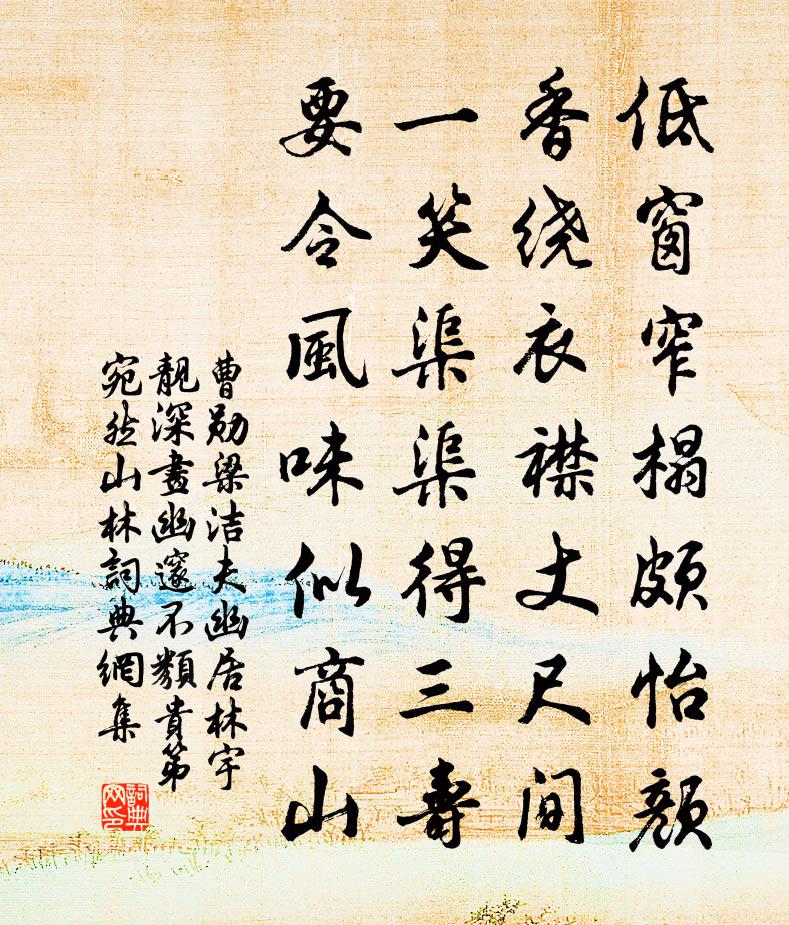 低窗窄榻颇怡颜
香绕衣襟丈尺间
一笑渠渠得三寿
要令風味似商山
曹勋梁洁夫幽居林宇
靓深畫幽邃不類貴第
宛然山林詞典網集
詞典网印